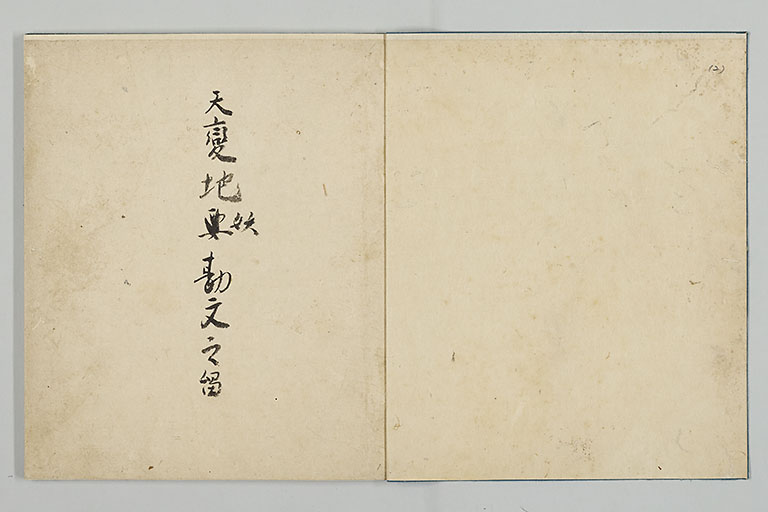 (2)
天變地妖勘文之留